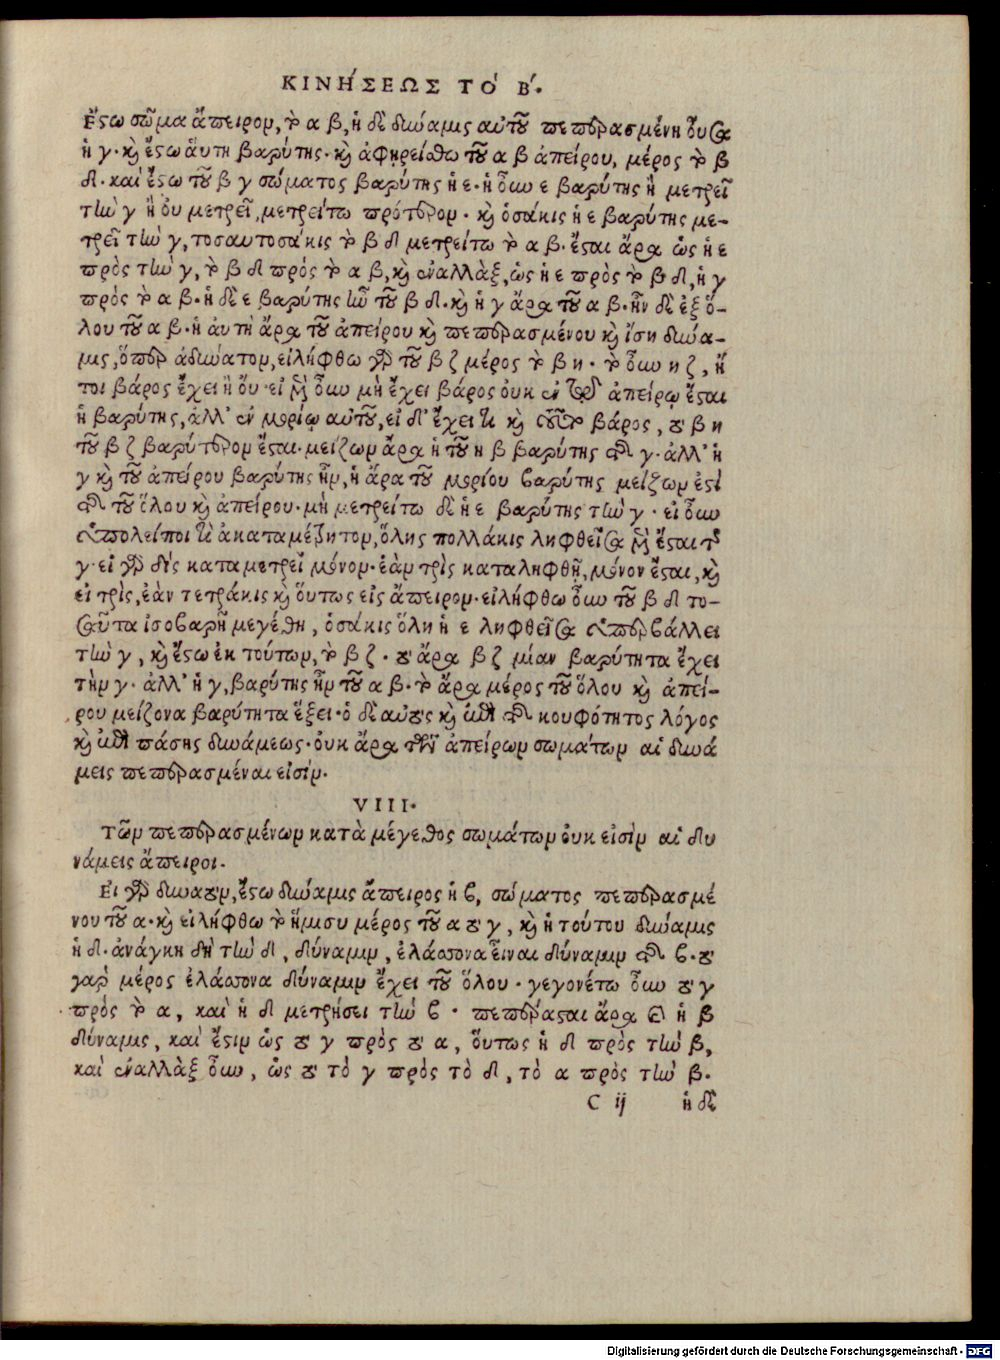 ΚΙΝΉΣΕΩΣ ΤΌ Β΄.
Ἔστω σῶμα ἄπειρον, τὸ α β, ἡ δὲ δύναμις αὐτοῦ πεπερασμένη οὖσα
ἡ γ. καὶ ἔστω ἅυτη βαρύτης. καὶ ἀφῃρείσθω τοῦ α β ἀπείρου, μέρος τὸ β
δ. καὶ ἔστω τοῦ β γ σώματος βαρύτης ἡ ε. ἡ οὖν ε βαρύτης ἢ μετρεῖ
τὴν γ ἢ ὀυ μετρεῖ, μετρείτω πρότερον. καὶ ὁσάκις ἡ ε βαρύτης με-
τρεῖ τὴν γ, τοσαυτοσάκις τὸ β δ μετρείτω τὸ α β. ἔσται ἄρα ὡς ἡ ε
πρὸς τὴν γ, τὸ β δ πρός τὸ α β, καὶ ἐναλλὰξ, ὡς ἡ ε πρὸς τὸ β δ, ἡ γ
πρὸς τὸ α β. ἡ δὲ ε βαρύτης ἦν τοῦ β δ. καὶ ἡ γ ἄρα τοῦ α β. ἦν δὲ ἐξ ὅ-
λου τοῦ α β. ἡ ἀυτὴ ἄρα τοῦ ἀπείρου καὶ πεπερασμένου καὶ ἴση δύνα-
μις, ὅπερ ἀδύνατον, εἰλήφθω γὰρ τοῦ β ζ μέρος τὸ β η. τὸ οὖν η ζ, ἤ
τοι βάρος ἔχει ἢ ὄυ. εἰ μὲν οὖν μὴ ἔχει βάρος ὀυκ ἐν τῷ ἀπείρῳ ἔσται
ἡ βαρύτης, ἀλλ' ἐν μορίῳ αὐτοῦ, εἰ δ' ἔχει τι καὶ τοῦτο βάρος, τὸ β η
τοῦ β ζ βαρύτερον ἔσται. μείζων ἄρα ἡ τοῦ η β βαρύτης τῆς γ. ἀλλ' ἡ
γ καὶ τοῦ ἀπείρου βαρύτης ἦν, ἡ ἄρα τοῦ μορίου βαρύτης μείζων ἐστὶ
τῆς τοῦ ὅλου καὶ ἀπείρου. μὴ μετρείτω δὲ ἡ ε βαρύτης τὴν γ. εἰ οὖν
ὑπολείποι τι ἀκαταμέτρητον, ὅλης πολλάκις ληφθεῖσα μὲν ἔσται τῆς
γ. εἰ γὰρ δὶς καταμετρεῖ μόνον. ἐὰν τρὶς καταληφθῇ, μόνον ἔσται, καὶ
εἰ τρὶς, ἐὰν τετράκις καὶ ὅυτως εἰς ἄπειρον. εἰλήφθω οὖν τοῦ β δ το-
σαῦτα ἰσοβαρῆ μεγέθη, ὁσάκις ὅλη ἡ ε ληφθεῖσα ὑπερβάλλει
τὴν γ, καὶ ἔστω ἐκ τούτων, τὸ β ζ. τὸ ἄρα β ζ μίαν βαρύτητα ἔχει
τὴν γ. ἀλλ' ἡ γ, βαρύτης ἦν τοῦ α β. τὸ ἄρα μέρος τοῦ ὅλου καὶ ἀπεί-
ρου μείζονα βαρύτητα ἕξει. ὁ δὲ αὐτὸς καὶ ἐπὶ τῆς κουφότητος λόγος
καὶ ἐπὶ πάσης δυνάμεως. ὀυκ ἄρα τῶν ἀπείρων σωμάτων αἱ δυνά
μεις πεπερασμέναι εἰσίν.
VIII.
Τῶν πεπερασμένων κατὰ μέγεθος σωμάτων ὀυκ εἰσὶν αἱ δυ
νάμεις ἄπειροι.
Ει γὰρ δυνατὸν, ἔστω δύναμις ἄπειρος ἡ β, σώματος πεπερασμέ
νου τοῦ α. καὶ εἰλήφθω τὸ ἥμισυ μέρος τοῦ α τὸ γ, καὶ ἡ τούτου δύναμις
ἡ δ. ἀνάγκη δὴ τὴν δ, δύναμιν, ἐλάσσονα εἶναι δύναμιν τῆς β. τὸ
γαρ μέρος ἐλάσσονα δύναμιν ἔχει τοῦ ὅλου. γεγονέτω οὖν τὸ γ
πρὸς τὸ α, καὶ ἡ δ μετρήσει τὴν β. πεπέρασται ἄρα καὶ ἡ β
δύναμις, καὶ ἔστιν ὡς τὸ γ πρὸς τὸ α, ὅυτως ἡ δ πρὸς τὴν β,
καὶ ἐναλλὰξ οὖν, ὡς τὸ τὸ γ πρὸς τὸ δ, τὸ α πρὸς τὴν β.
C ij ἡ δὲ
Digitalisierung gefördert durch die Deutsche Forschungsgemeinschaft - DFG